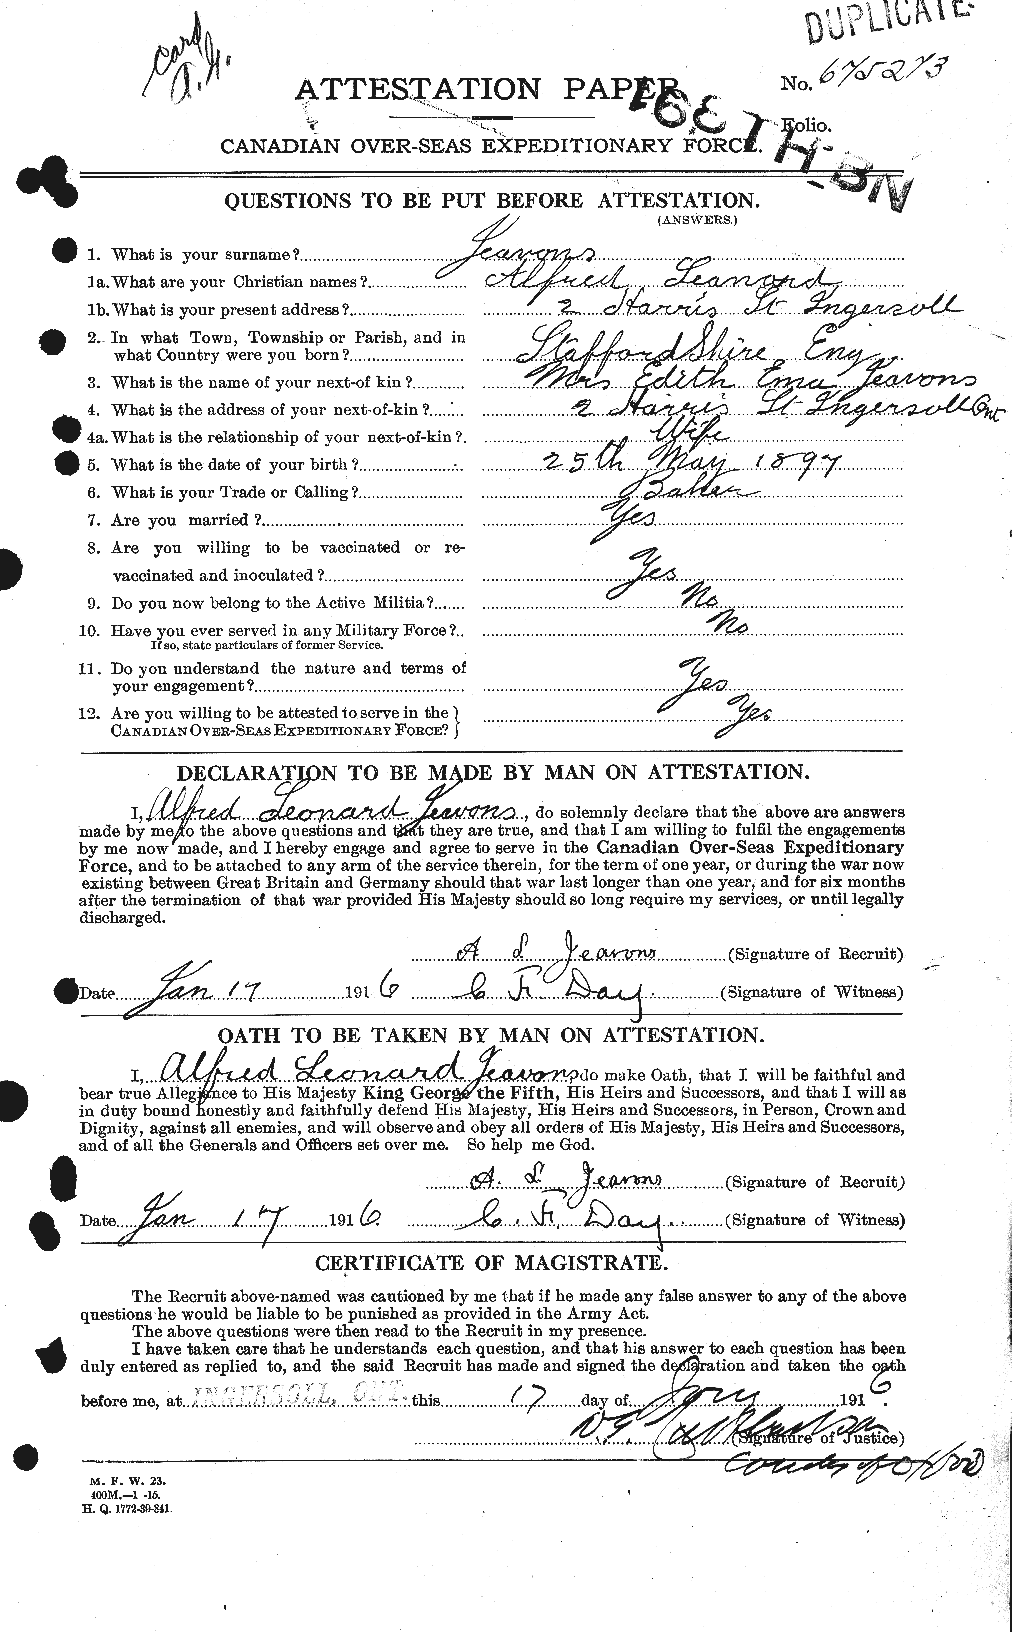 DUPLICATE
card
A.G.
No. 675273
ATTESTATION PAPER.
Folio.
168TH BN
CANADIAN OVER-SEAS EXPEDITIONARY FORCE.
QUESTIONS TO BE PUT BEFORE ATTESTATION.
(ANSWERS.)
1. What is your surname? Jeavons
1a. What are your Christian names? Alfred Leanord
1b. What is your present address? 2 Harris St Ingersoll
2. In what Town, Township or Parish, and in
what Country were you born? StaffordShire Eng.
3. What is the name of your next-of kin? Mrs Edith Ema Jeavons
4. What is the address of your next-of-kin? 2 Harris St Ingersoll Ont
4a. What is the relationship of your next-of-kin? Wife
5. What is the date of your birth? 25th May 1897
6. What is your Trade or Calling? Baker
7. Are you married? Yes
8. Are you willing to be vaccinated or re-
vaccinated and inoculated? Yes
9. Do you now belong to the Active Militia? No
10. Have you ever served in any Military Force? No
If so, state particulars of former Service.
11. Do you understand the nature and terms of
your engagement? Yes
12. Are you willing to be attested to serve in the
CANADIAN OVER-SEAS EXPEDITIONARY FORCE? Yes
DECLARATION TO BE MADE BY MAN ON ATTESTATION.
I, Alfred Leonard Jeavons, do solemnly declare that the above are answers
made by me to the above questions and that they are true, and that I am willing to fulfil the engagements
by me now made, and I hereby engage and agree to serve in the Canadian Over-Seas Expeditionary
Force, and to be attached to any arm of the service therein, for the term of one year, or during the war now
existing between Great Britain and Germany should that war last longer than one year, and for six months
after the termination of that war provided His Majesty should so long require my services, or until legally
discharged.
A L Jeavons (Signature of Recruit)
Date Jan 17 1916 C F. Day. (Signature of Witness)
OATH TO BE TAKEN BY MAN ON ATTESTATION.
I, Alfred Leonard Jeavons do make Oath, that I will be faithful and
bear true Allegiance to His Majesty King George the Fifth, His Heirs and Successors, and that I will as
in duty bound honestly and faithfully defend His Majesty, His Heirs and Successors, in Person, Crown and
Dignity, against all enemies, and will observe and obey all orders of His Majesty, His Heirs and Successors,
and of all the Generals and Officers set over me. So help me God.
A. L Jeavons (Signature of Recruit)
Date Jan 17 1916 C. F. Day. (Signature of Witness)
CERTIFICATE OF MAGISTRATE.
The Recruit above-named was cautioned by me that if he made any false answer to any of the above
questions he would be liable to be punished as provided in the Army Act.
The above questions were then read to the Recruit in my presence.
I have taken care that he understands each question, and that his answer to each question has been
duly entered as replied to, and the said Recruit has made and signed the declaration and taken the oath
before me, at INGERSOLL, ONT. this 17 day of Jany 1916.
(Signature of Justice)
County of Oxford
M. F. W. 23.
400M.—1-15.
H. Q. 1772-39-841.